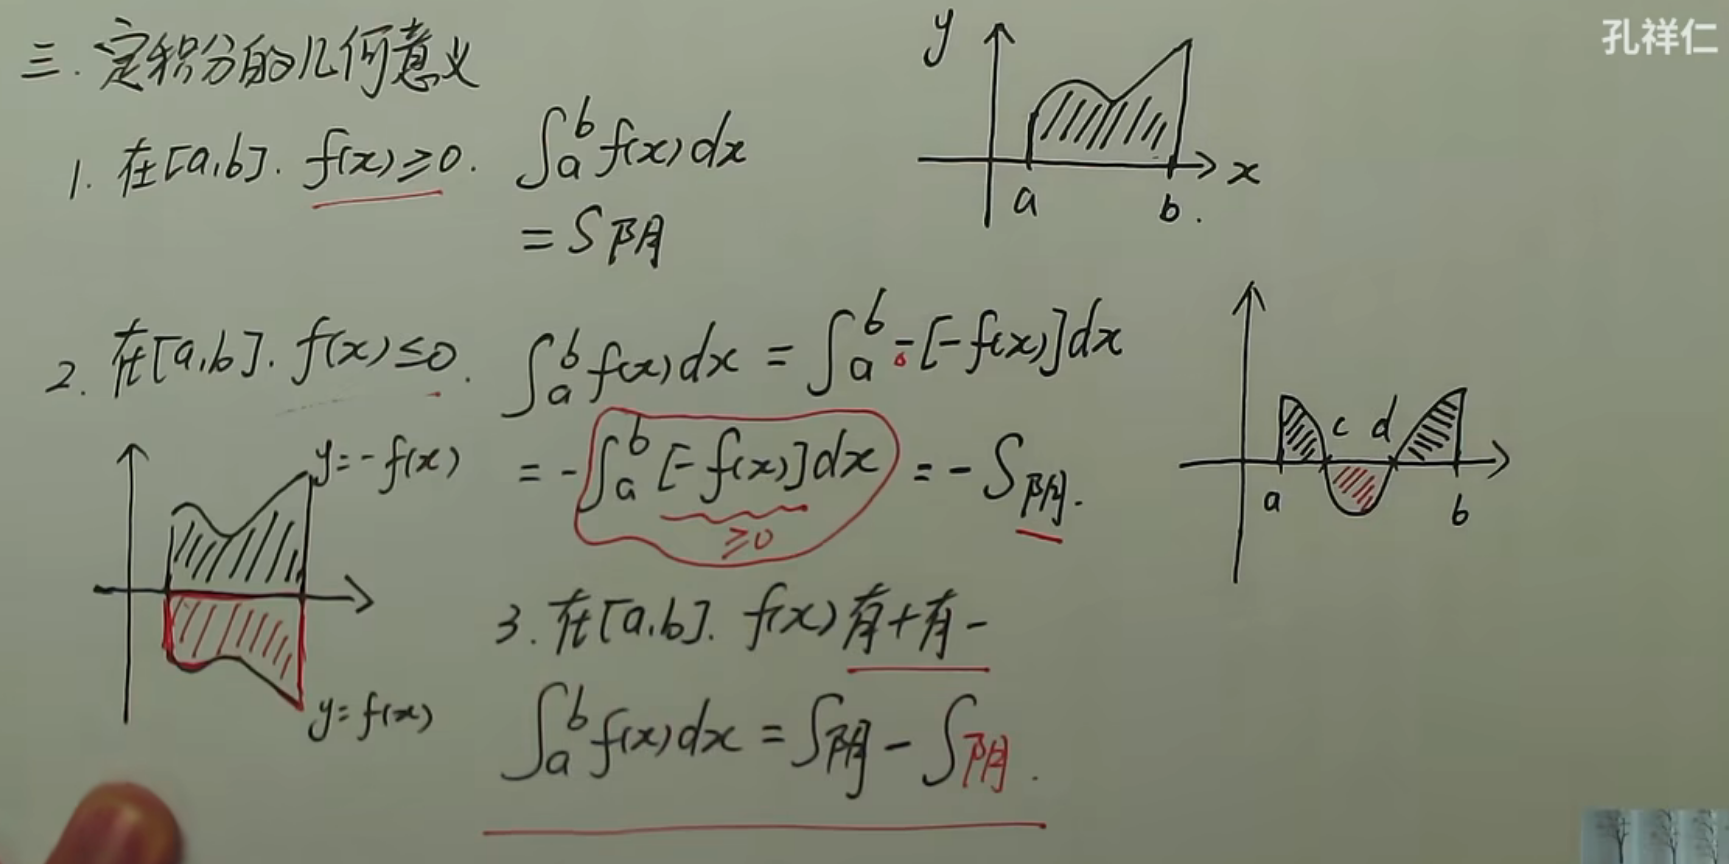 孔祥仁
三. 定积分的几何意义
1. 在[a,b]. f(x)≥0. ∫_a^b f(x)dx
= S阴
y
x
a
b.
2. 在[a,b]. f(x)≤0. ∫_a^b f(x)dx = ∫_a^b -[-f(x)]dx
= -∫_a^b [-f(x)]dx = -S阴.
≥0
y=-f(x)
y=f(x)
c d
a b
3. 在[a,b]. f(x)有+有-
∫_a^b f(x)dx = S阴 - S阴.